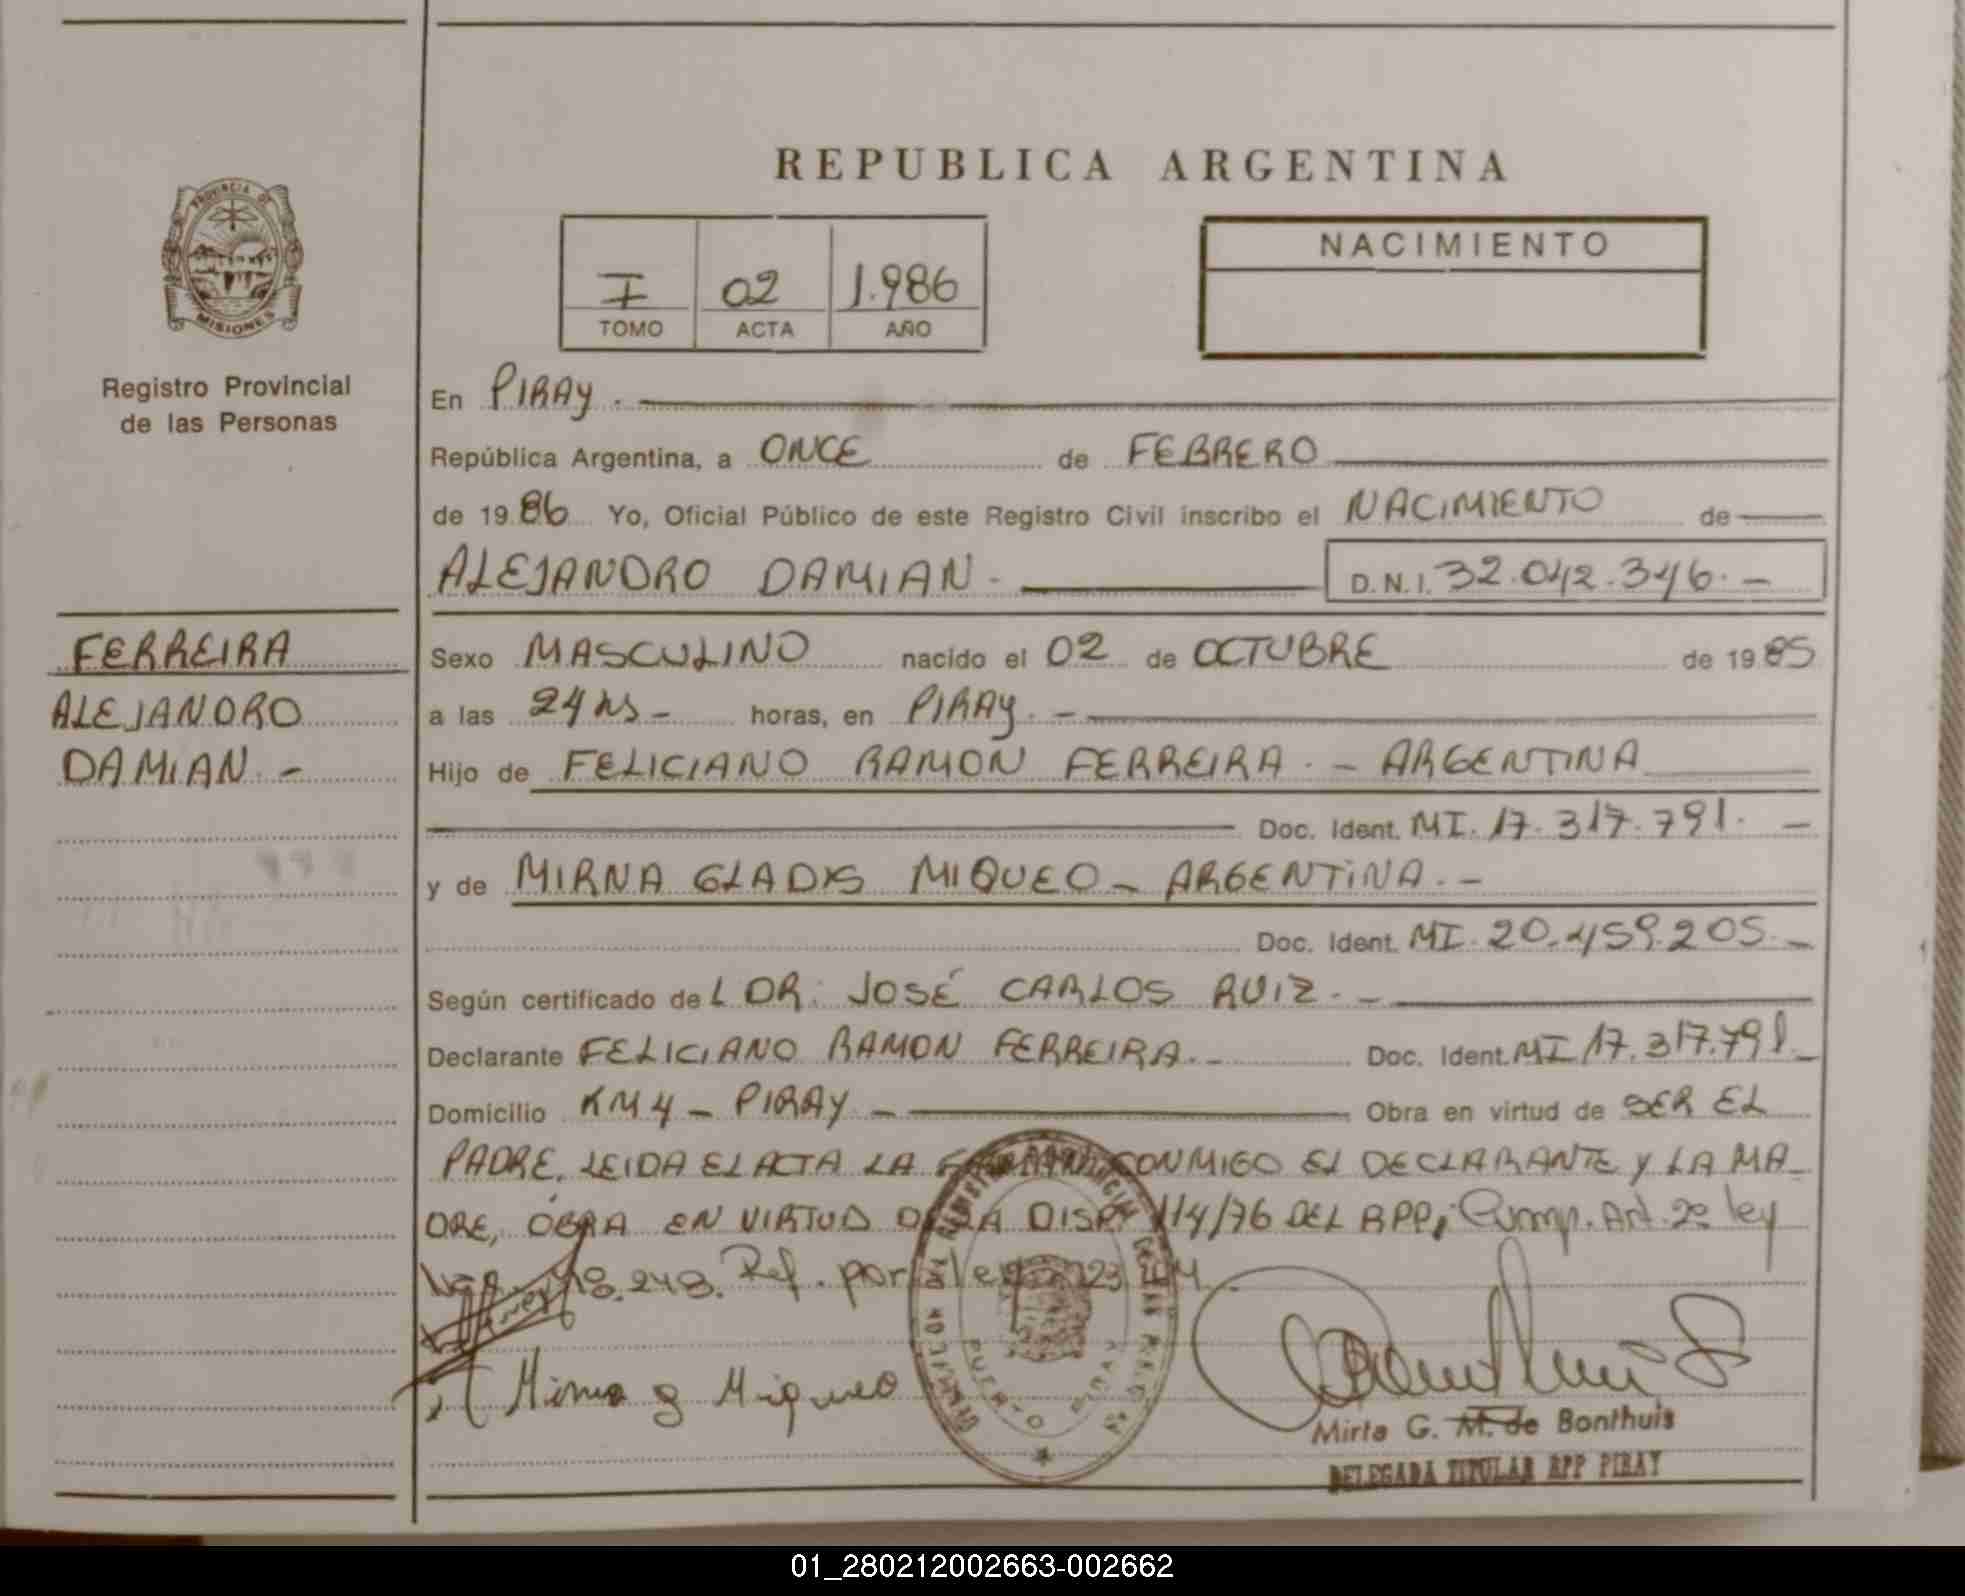 REPUBLICA ARGENTINA
PROVINCIA DE
MISIONES
Registro Provincial
de las Personas
I 02 1.986
TOMO ACTA AÑO
NACIMIENTO
En PIRAY . —
República Argentina, a ONCE de FEBRERO
de 1986 Yo, Oficial Público de este Registro Civil inscribo el NACIMIENTO de
ALEJANDRO DAMIAN - D.N.I. 32.042.346. -
FERREIRA
ALEJANDRO
DAMIAN. -
Sexo MASCULINO nacido el 02 de OCTUBRE de 1985
a las 24 hs - horas, en PIRAY. -
Hijo de FELICIANO RAMON FERREIRA. - ARGENTINA
Doc. Ident. MI. 17.317.791. -
y de MIRNA GLADYS MIQUEO - ARGENTINA. -
Doc. Ident. MI. 20.459.205. -
Según certificado de L DR. JOSÉ CARLOS RUIZ. -
Declarante FELICIANO RAMON FERREIRA. - Doc. Ident. MI 17.317.791. -
Domicilio KM 4 - PIRAY - Obra en virtud de SER EL
PADRE. LEIDA EL ACTA LA CONMIGO EL DECLARANTE Y LA MA-
DRE, OBRA EN VIRTUD DE LA DISP. 114/76 DEL RPP, Cump. Art. 2º ley
18.248. Ref. por ley
Mirna g Miqueo
PUERTO PIRAY
Mirta G. M. de Bonthuis
DELEGADA TITULAR RPP PIRAY
01_280212002663-002662